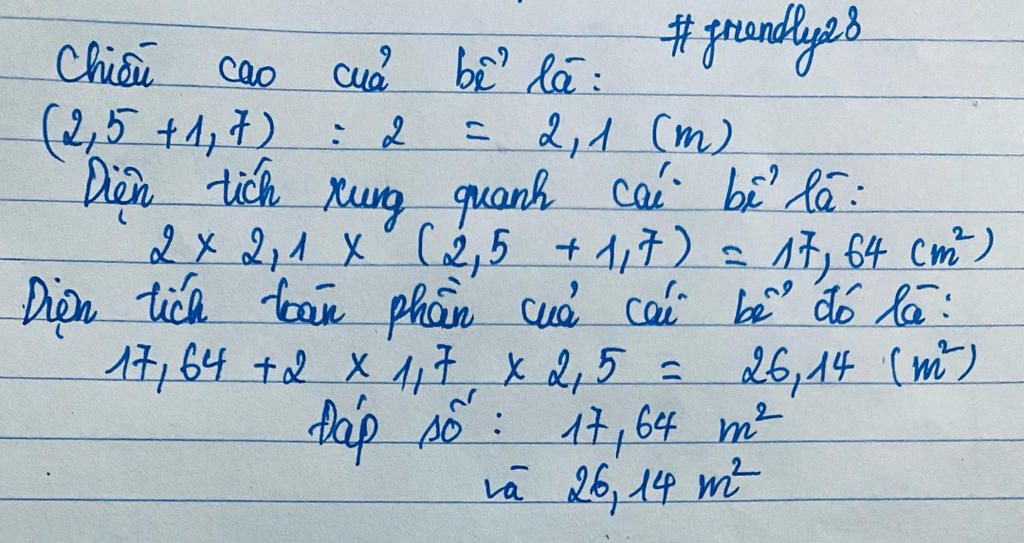 #friendly28
Chiều cao của bể là:
(2,5 + 1,7) : 2 = 2,1 (m)
Diện tích xung quanh cái bể là:
2 x 2,1 x (2,5 + 1,7) = 17,64 (m²)
Diện tích toàn phần của cái bể đó là:
17,64 + 2 x 1,7 x 2,5 = 26,14 (m²)
Đáp số : 17,64 m²
và 26,14 m²